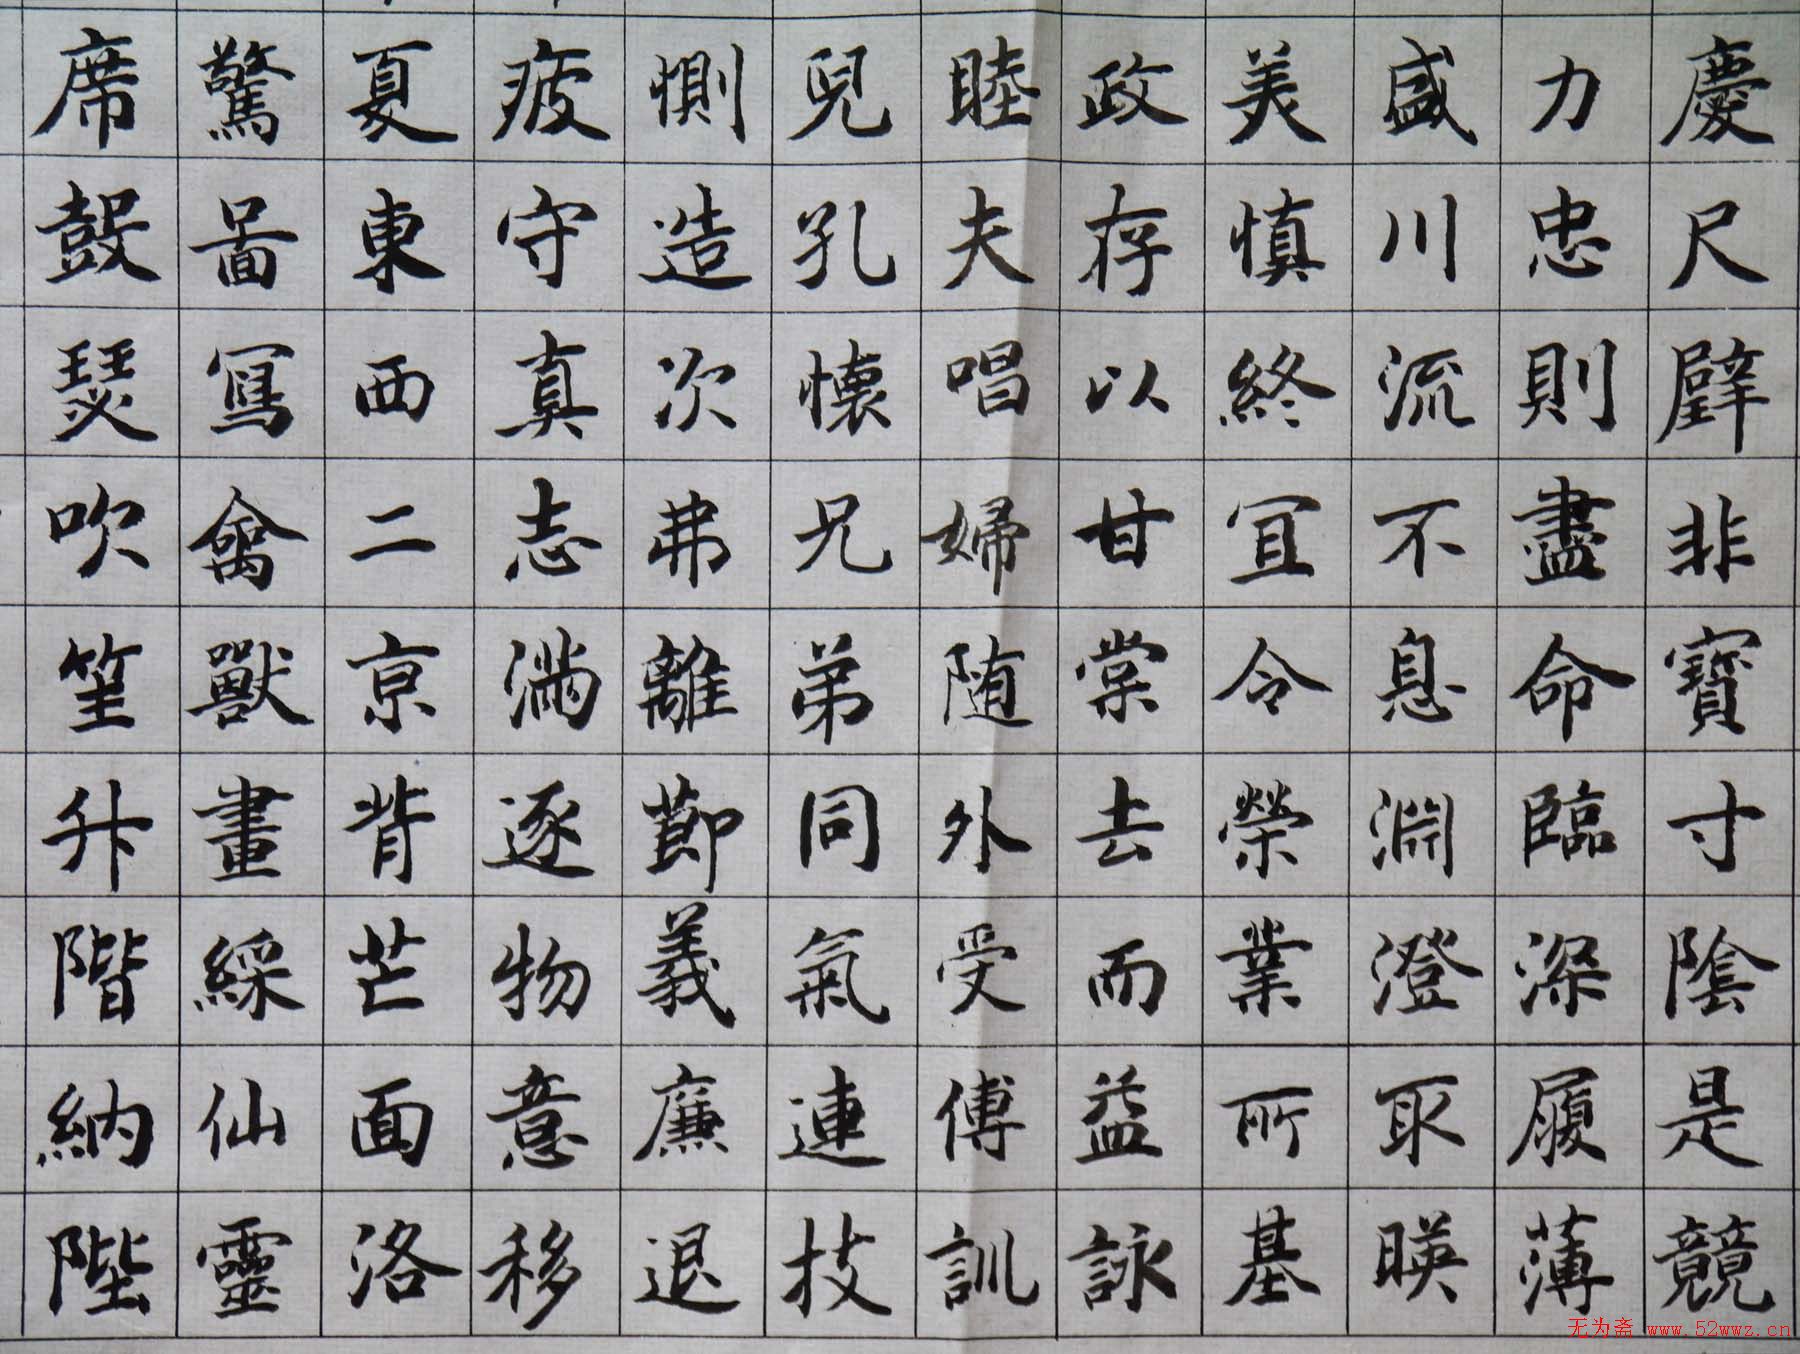 慶尺璧非寶寸陰是競
力忠則盡命臨深履薄
盛川流不息淵澄取暎
美慎終宜令榮業所基
政存以甘棠去而益詠
睦夫唱婦随外受傅訓
兒孔懐兄弟同氣連枝
惻造次弗離節義廉退
疲守真志滿逐物意移
夏東西二京背芒面洛
驚啚寫禽獸畫綵仙靈
席鼓瑟吹笙升階納陛
无为斋 www.52wwz.cn